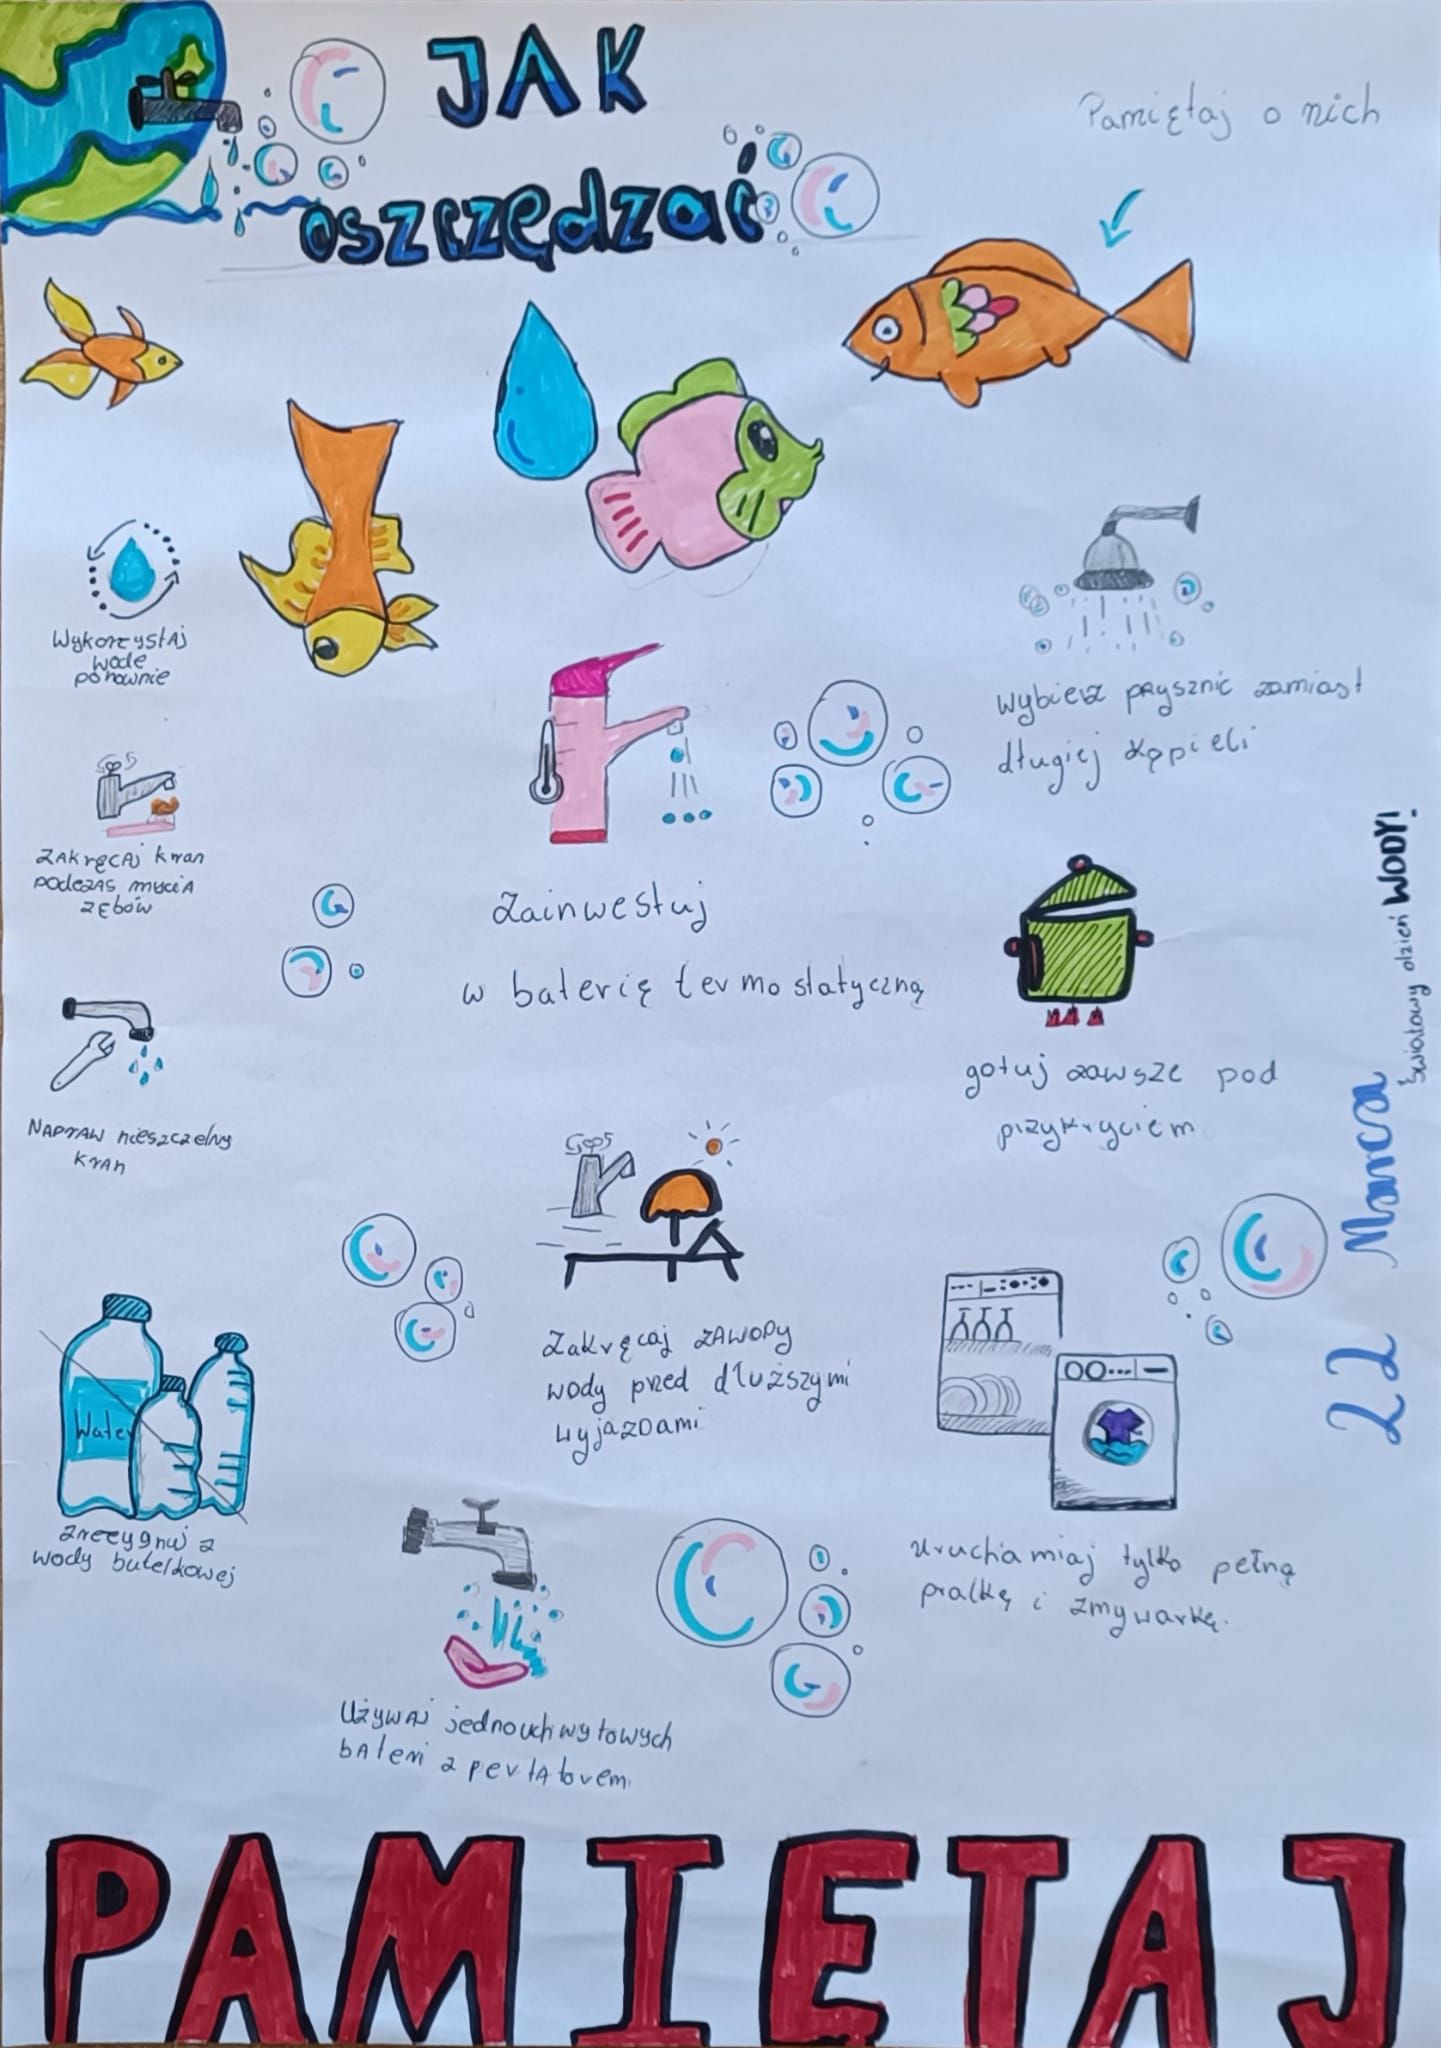 JAK
oszczędzać
Pamiętaj o nich
Wykorzystaj
wodę
ponownie
wybierz prysznic zamiast
długiej kąpieli
ZAKręCAj kran
podczAs mycia
zębów
Zainwestuj
w baterię termostatyczną
NAPrAW nieszczelny
krAn
gotuj zawsze pod
przykryciem
22 Marca
Światowy dzień WODY!
Zakręcaj ZAWORY
wody przed dłuższymi
wyjazdami
Water
zrezygnuj z
wody butelkowej
uruchamiaj tylko pełną
pralkę i zmywarkę.
UżywAj jednouchwytowych
bAterii z perlAtorem.
PAMIĘTAJ